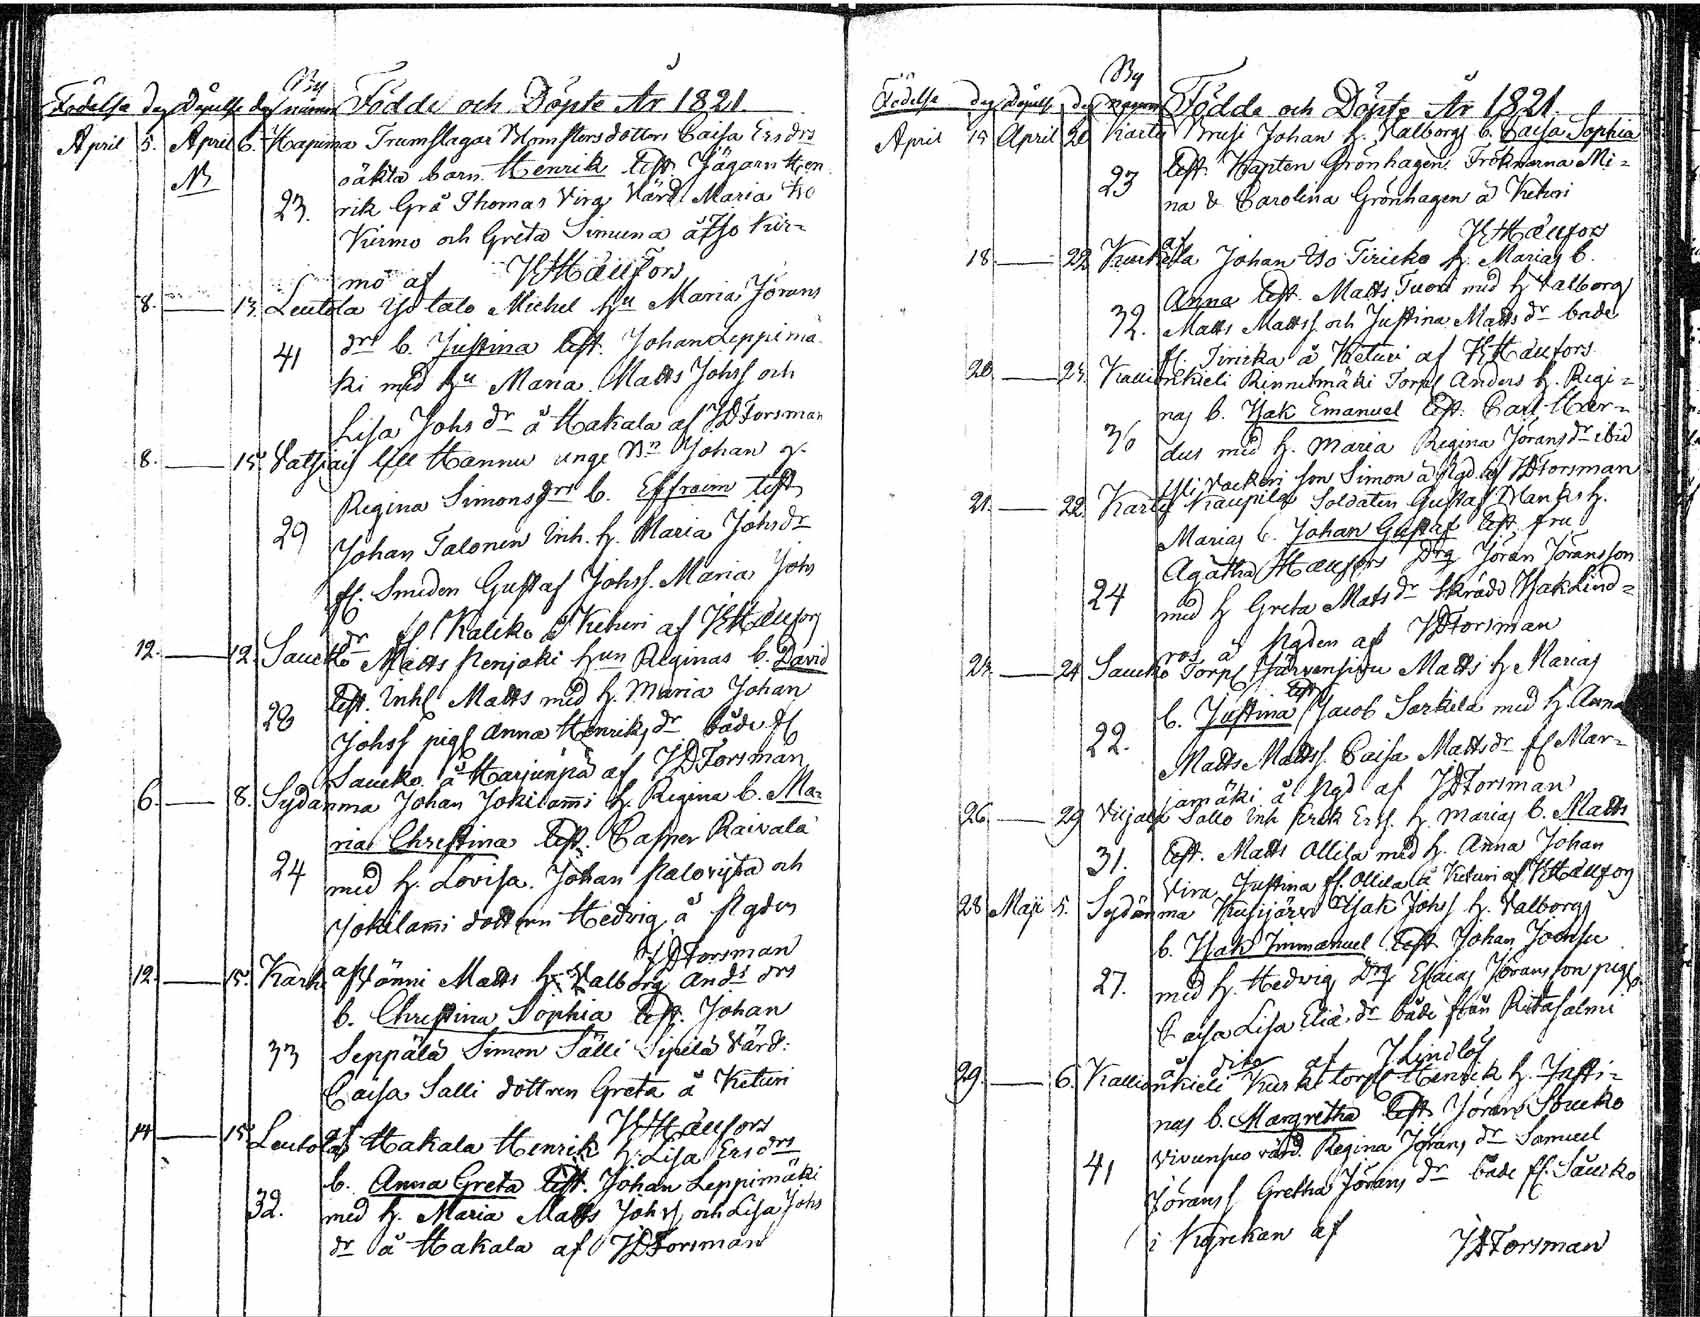 By
Födelse dag Döpelse dag namn Födde och Döpte År 1821.
April 5. April 6. Hapuma Trumslagar Blomsters dotters Caisa Ersdrs
oäkta barn Henrik test. Jägarn Hen
23. rik Grå Thomas Virg Värd. Maria Iso
Kiirmo och Greta Simuna å Iso Kiir=
mo af
8. 13. Leutola Ylitalo Michel hu Maria Jörans
41 drs b. Justina test. Johan Leppimä
ki med hu Maria. Matts Johss och
Lisa Johs dr å Hakala af JDForsman
8. 15. Johan o.
Regina Simonsdrs b. Effraim test
29 Johan Talonen Inh. h. Maria Johsdr
fr. Smeden Gustaf Johss. Maria Johs
dr å Keturi af
12. 12. Saucko Matts Penjaki hun Reginas b. David
28 test. Inhs Matts med h. Maria Johan
Johss pigs Anna Henriks dr både fr
Saucko å Harjunpä af JDForsman
6. 8. Sydänma Johan Jokilammi h. Regina b. Ma=
ria Christina test. Casper Raivala
24 med h. Lovisa. Johan Palovijta och
Jokilammi dottern Hedvig å
JDForsman
12. 15. Karhi af Sönni Matts h. Valborg Ands drs
b. Christina Sophia test. Johan
33 Seppälä Simon Sälli Sipilä Värd:
Caisa Salli dottren Greta å Keturi
af
14 15. Leutola Hakala Henrik h. Lisa Ersdrs
b. Anna Greta test. Johan Leppimäki
32. med h. Maria Matts Johss och Lisa Johs
dr å Hakala af JDForsman
By
Födelse dag Döpelse dag namn Födde och Döpte År 1821.
April 15 April 20 Karhi Prusi Johan h. Valborgs b. Caisa Sophia
23 test. Kapten Grönhagen. Fröknarna Mi=
na & Carolina Grönhagen å Keturi
af
18. 22 Kurkela Johan Iso Tiricko h. Marias b.
Anna test. Matts Tuori med h Valborg
32. Matts Mattss och Justina Matts dr bade
fr. Tiricka å Keturi af
20. 23. Kallionkieli Rinnetmäki Torps Anders h. Regi=
nas b. Isak Emanuel test. Carl Her=
36 dus med h. Maria Regina Jörans dr ibid
son Simon å af JDForsman
21. 22. Karhi Kaupila Soldaten Gustaf Planks h.
Marias b. Johan Gustaf test. fru
Agatha Drg Jöran Jöransson
24 med h Greta Mats dr Skrädd Isak Lind=
ros å af JDForsman
23. 24 Saucko Torps Järvensivu Matts h Marias
b. Justina test Jacob Sarkela med h Anna
22. Matts Mattss. Caisa Matts dr fr Mar=
jamäki å af JDForsman
26. 29 Viljala Sallo Inh Erik Ers. h. Marias b. Matts
31. test. Matts Ollila med h. Anna Johan
Vira Justina fr. Ollila å Keturi af
28 Maji 5. Sydänma Kusijärvi Isak Johss h. Valborgs
b. Isak Immanuel test Johan Joensu
27. med h. Hedvig Drg Esaias Jöransson pigs
Caisa Lisa Elia dr både från Ritasalmi
å dito af JLindlöf
29. 6. Kallionkieli Kurki torps Henrik h. Justi=
nas b. Margretha test Jöran Soucko
41 Vivunpuo värd. Regina Jörans dr Samuel
Jöranss Gretha Jörans dr både fr. Saucko
i Kyrckan af JDForsman